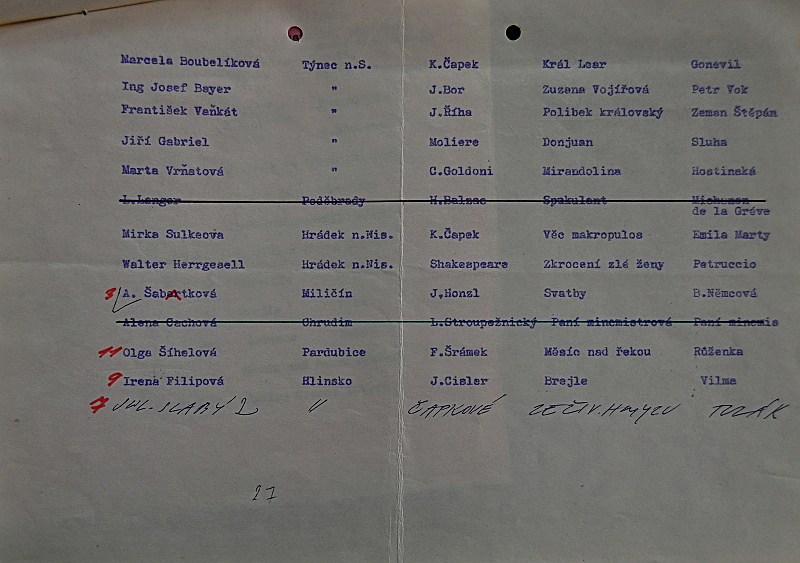 Marcela Boubelíková Týnec n.S. K.Čapek Král Lear Gonevil
Ing Josef Bayer " J.Bor Zuzana Vojířová Petr Vok
František Vaňkát " J.Říha Polibek královský Zeman Štěpán
Jiří Gabriel " Moliere Donjuan Sluha
Marta Vrňatová " C.Goldoni Mirandolina Hostinská
L.Langer Poděbrady H.Balzac Spekulant
de la Gráve
Mirka Sulkeova Hrádek n.Nis. K.Čapek Věc makropulos Emila Marty
Walter Herrgesell Hrádek n.Nis. Shakespeare Zkrocení zlé ženy Petruccio
8 A. Šabatková Miličín J.Honzl Svatby B.Němcová
Alena Cachová Chrudim L.Stroupežnický Paní mincmistrová Paní mincmis
11 Olga Šíhelová Pardubice F.Šrámek Měsíc nad řekou Růženka
9 Irena Filipová Hlinsko J.Cisler Brejle Vilma
7 JUL. SLABÝ 2 " ČAPKOVÉ ZE ŽIV. HMYZU TULÁK
27